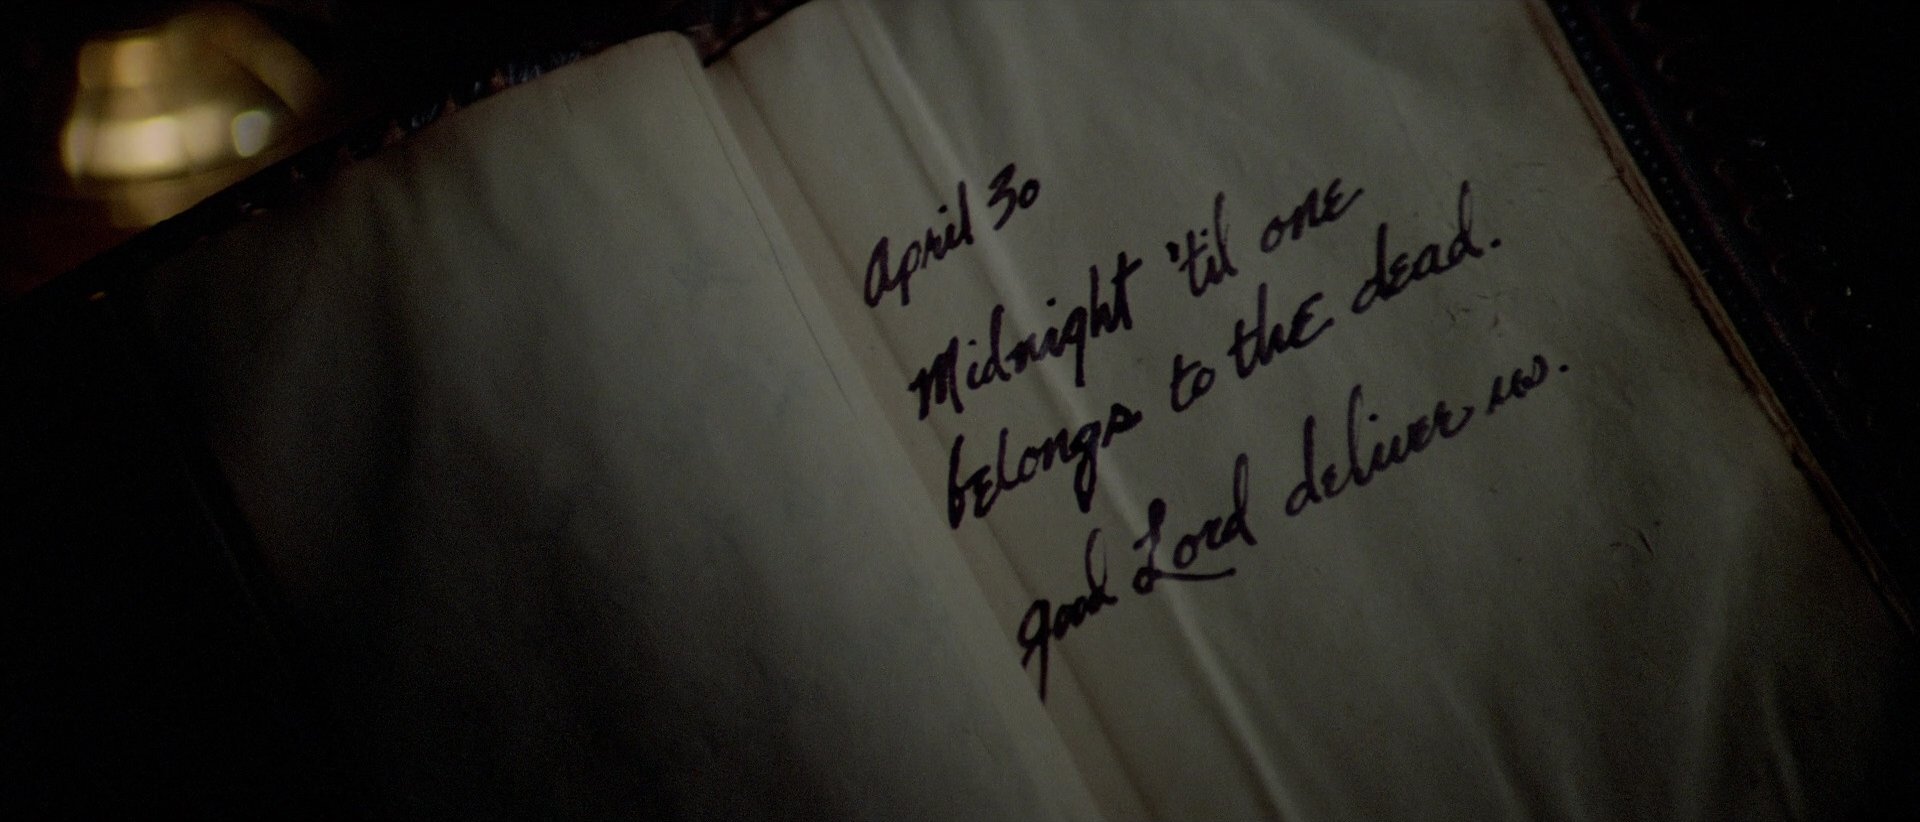 April 30
Midnight 'til one
belongs to the dead.
Good Lord deliver us.